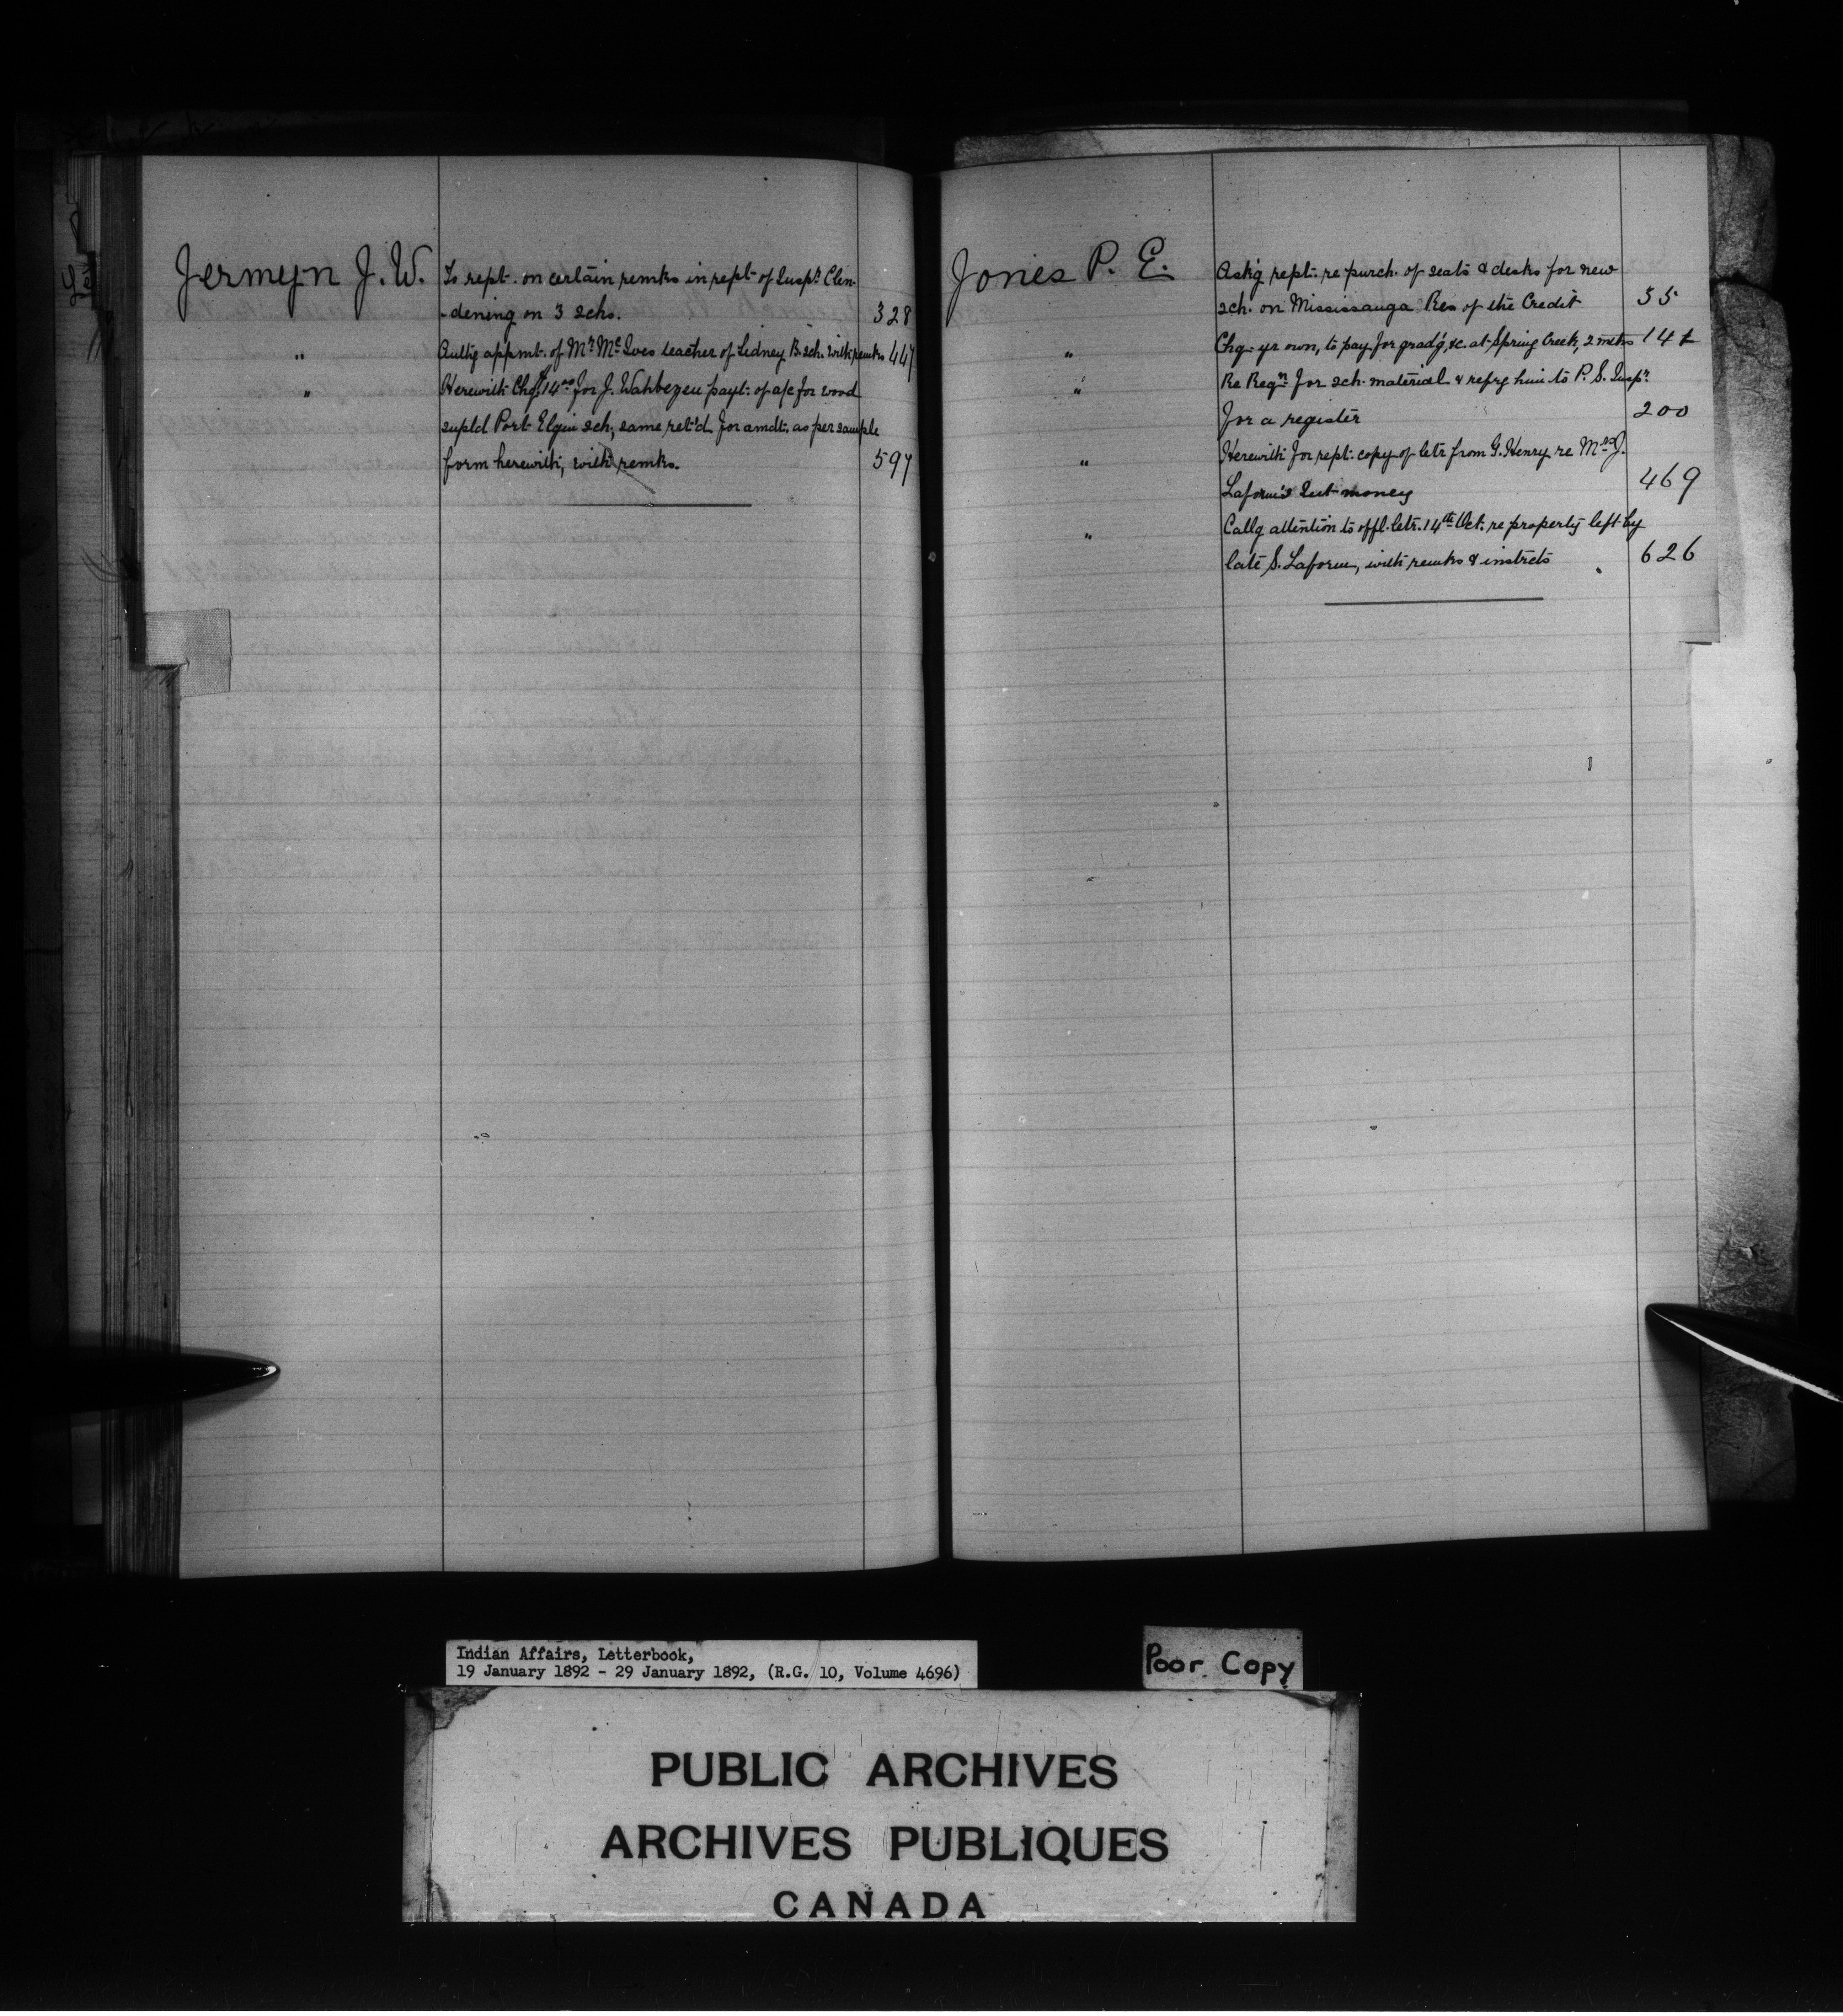 Jermyn J. W.
To rept. on certain remks in rept of Inspr. Clen-
-dening on 3 schs. 328
" Authg appmt. of Mr. McIves teacher of Sidney B. sch. with remks 447
" Herewith Chq. $14.00 for J. Wahbezee payt. of a/c for wood
supld Port Elgin sch; same ret'd for amdt. as per sample
form herewith, with remks. 597
Jones P. E.
Ask'g rept. re purch. of seats & desks for new
sch. on Mississauga Res of the Credit 55
" Chq. yr own, to pay for grad'g, &c. at Spring Creek, 2 mtks 14
" Re Reqn. for sch. material & refrg him to P. S. Inspr.
for a register 200
" Herewith for rept. copy of letr from G. Henry re Mrs J.
Laform's Int money 469
" Callg attention to offl. letr. 14th Oct. re property left by
late S. Laform, with remks & instrcts 626
Indian Affairs, Letterbook,
19 January 1892 - 29 January 1892, (R.G. 10, Volume 4696)
Poor Copy
PUBLIC ARCHIVES
ARCHIVES PUBLIQUES
CANADA